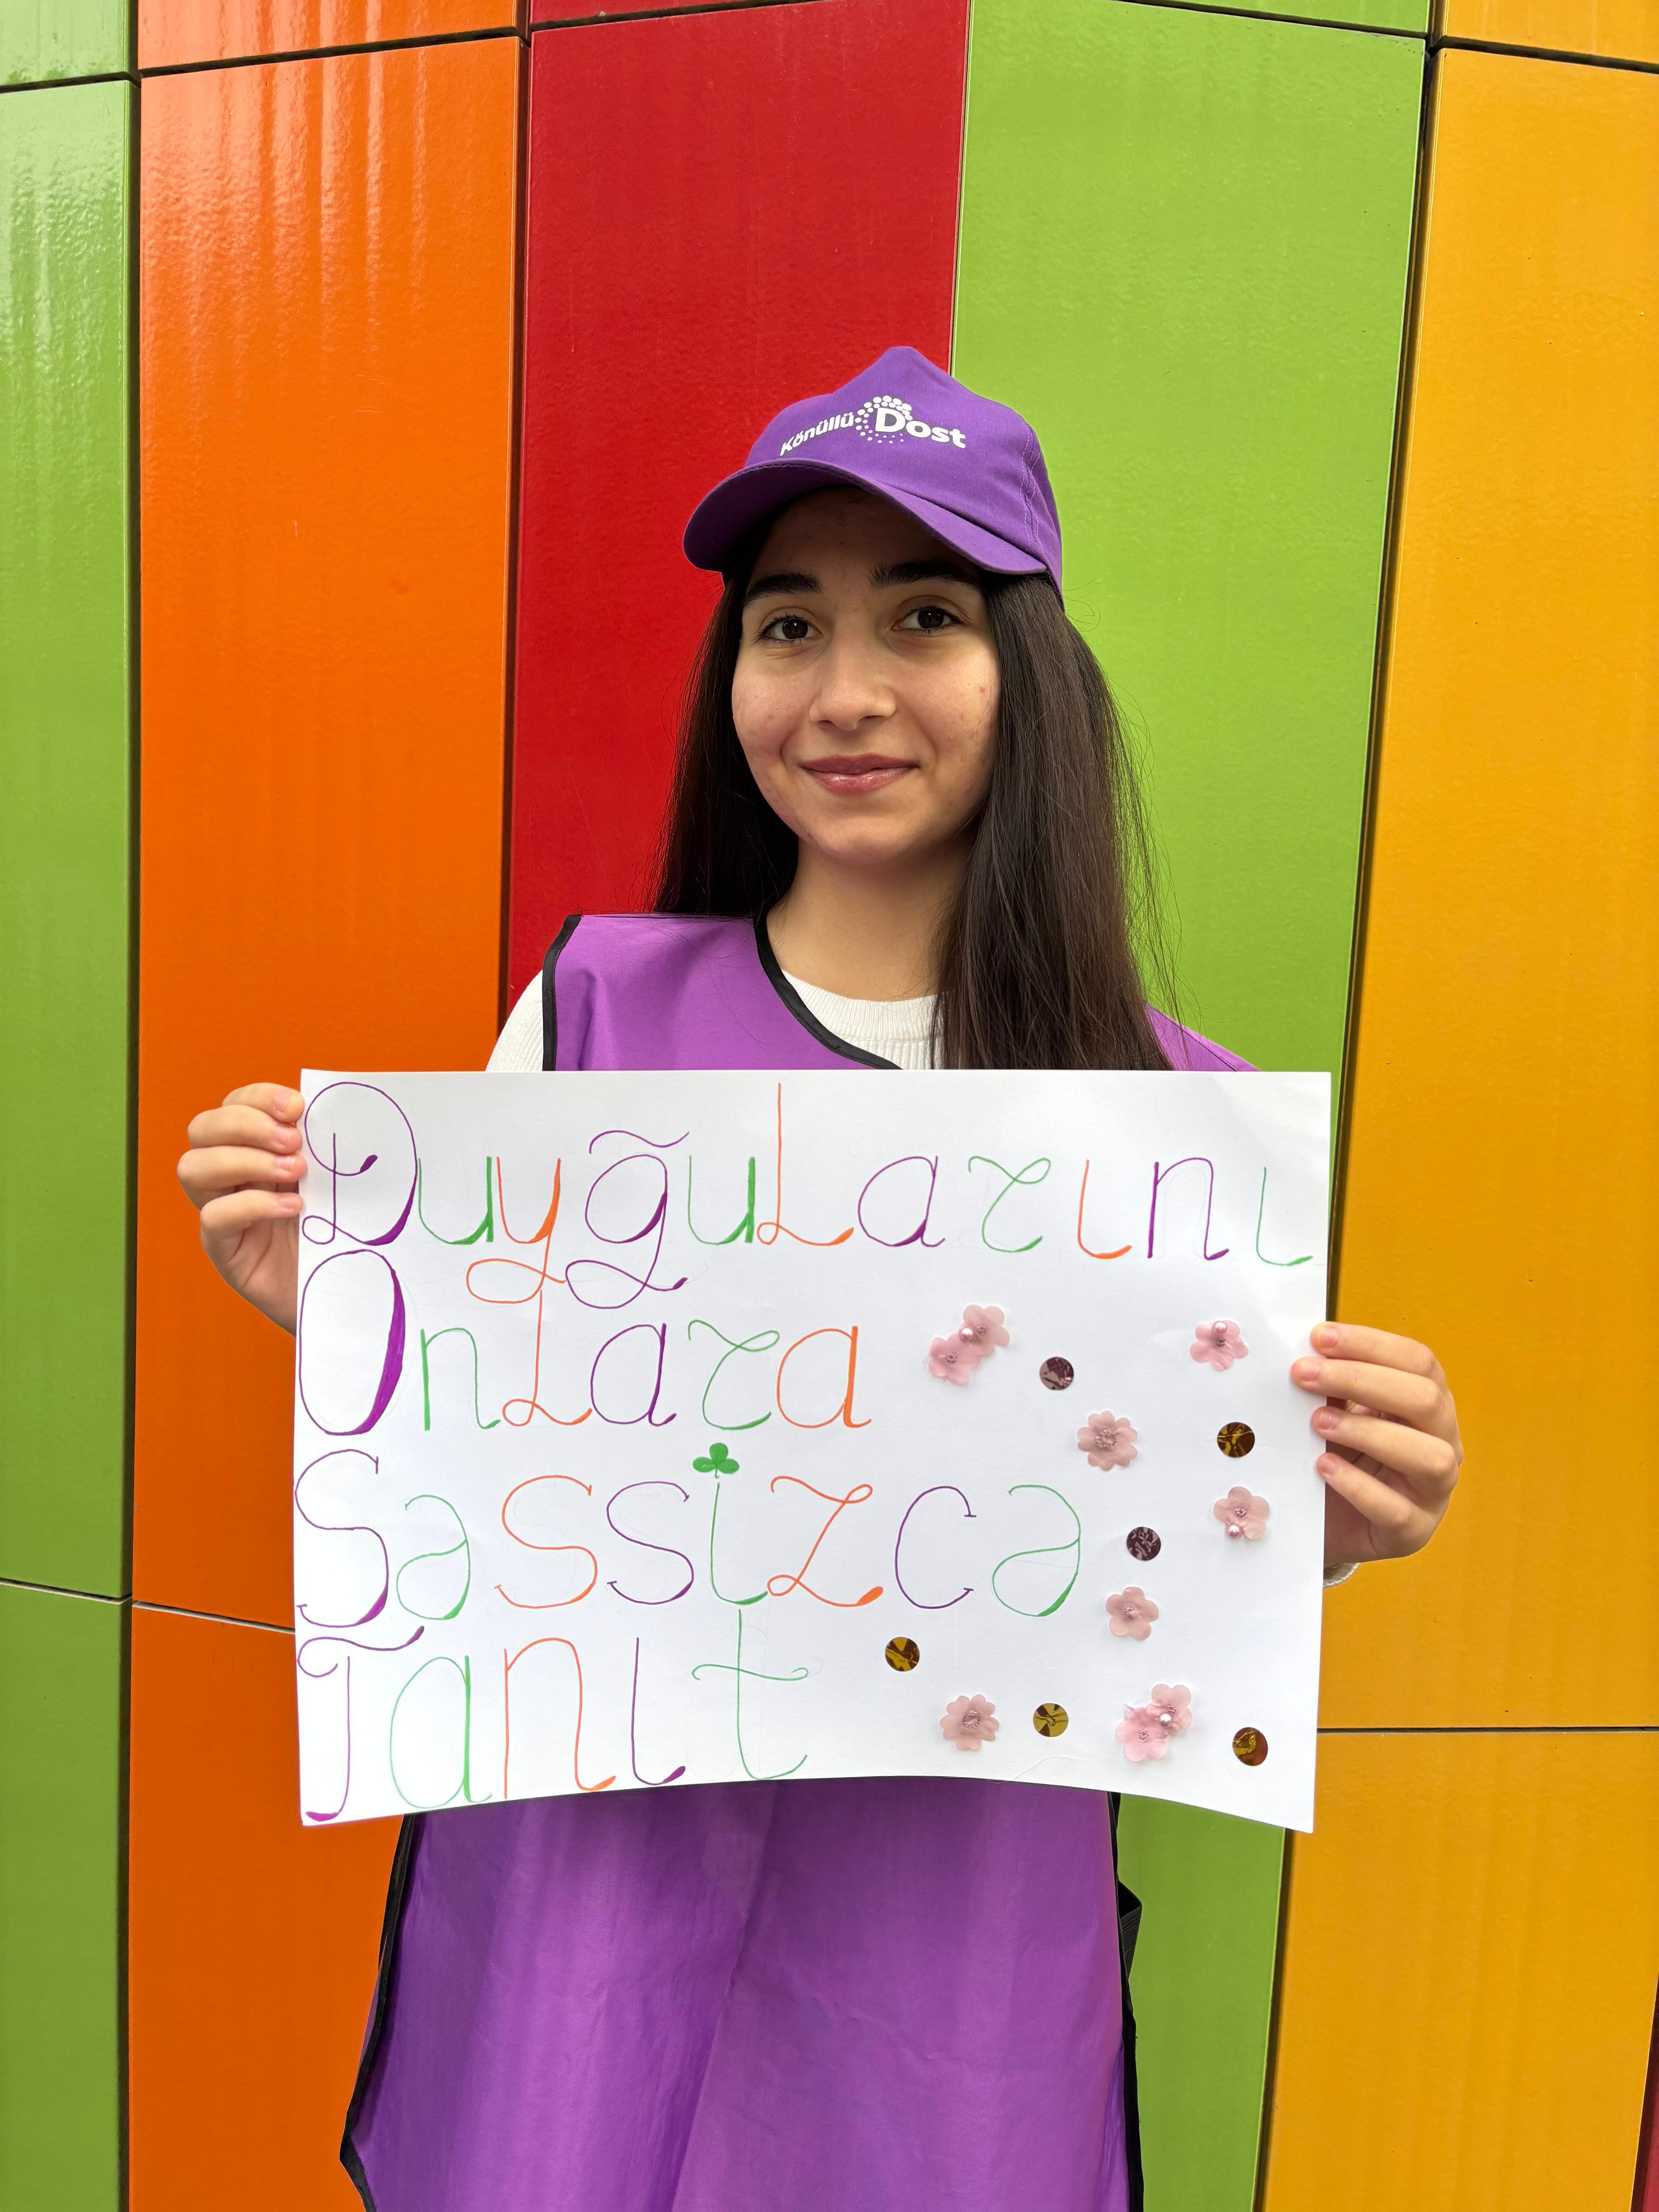 Könüllü Dost
Duyğularını
Onlara
Səssizcə
Tanıt